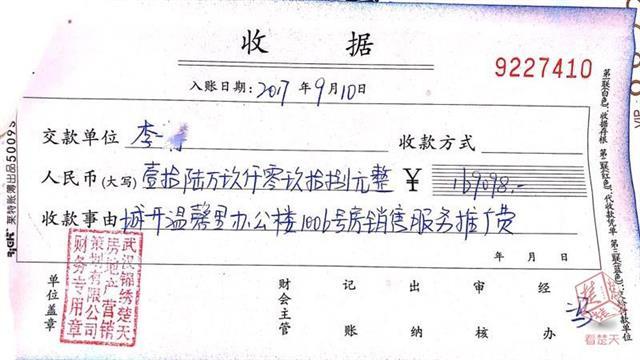 收据
9227410
入账日期：2017年9月10日
交款单位 李 收款方式
人民币(大写)壹拾陆万玖仟零玖拾捌元整 ￥169098.-
收款事由 城开温馨里办公楼1006号房销售服务推广费
年 月 日
单位盖章 财会主管 记账 出纳 审核 经办
武汉锦绣楚天
房地产营销
策划有限公司
财务专用章
莱特账簿出品5009
看楚天